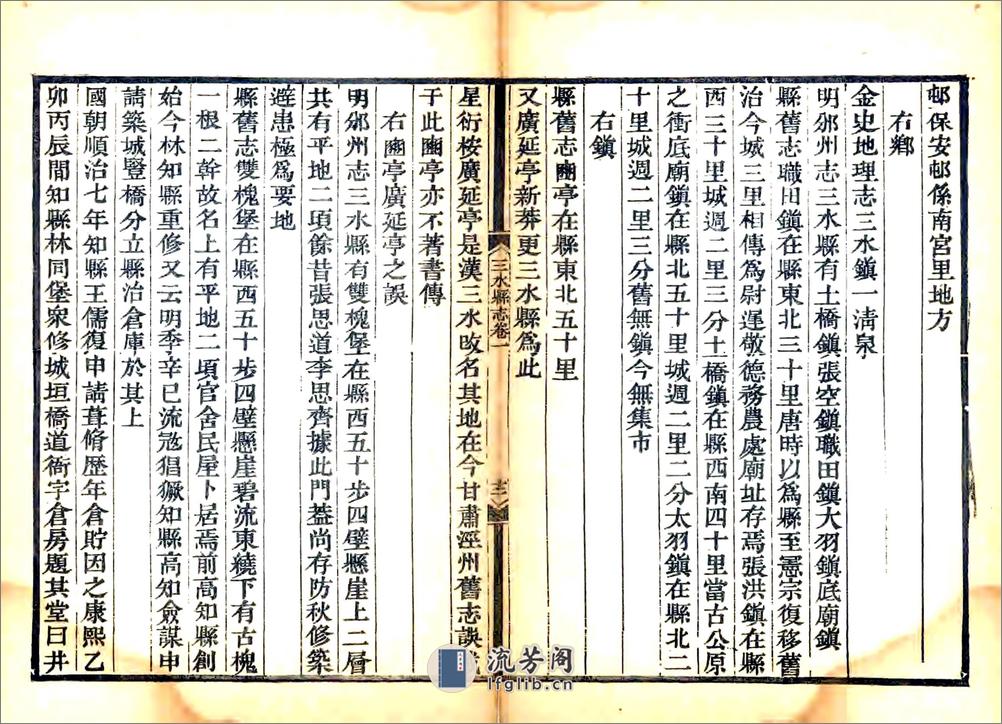 邨保安邨係南宮里地方
右鄉
金史地理志三水鎮一淸泉
明邠州志三水縣有土橋鎮張空鎮職田鎮大羽鎮底廟鎮
縣舊志職田鎮在縣東北三十里唐時以爲縣至憲宗復移舊
治今城三里相傳爲尉遲敬德務農處廟址存焉張洪鎮在縣
西三十里城週二里三分土橋鎮在縣西南四十里當古公原
之衝底廟鎮在縣北五十里城週二里二分太羽鎮在縣北二
十里城週二里三分舊無鎮今無集市
右鎮
縣舊志豳亭在縣東北五十里
又廣延亭新莽更三水縣爲此
三水縣志卷一
十二
星衍桉廣延亭是漢三水改名其地在今甘肅涇州舊志誤
于此豳亭亦不著書傳
右豳亭廣延亭之誤
明邠州志三水縣有雙槐堡在縣西五十步四壁懸崖上二層
共有平地二項餘昔張思道李思齊據此門葢尚存防秋修築
避患極爲要地
縣舊志雙槐堡在縣西五十步四壁懸崖碧流東繞下有古槐
一根二幹故名上有平地二項官舍民屋卜居焉前高知縣創
始今林知縣重修又云明季辛巳流寇猖獗知縣高知僉謀申
請築城豎橋分立縣治倉庫於其上
國朝順治七年知縣王儒復申請葺脩歷年倉貯因之康熙乙
卯丙辰間知縣林同堡衆修城垣橋道衙宇倉房題其堂曰井
流芳阁
lfglib.cn